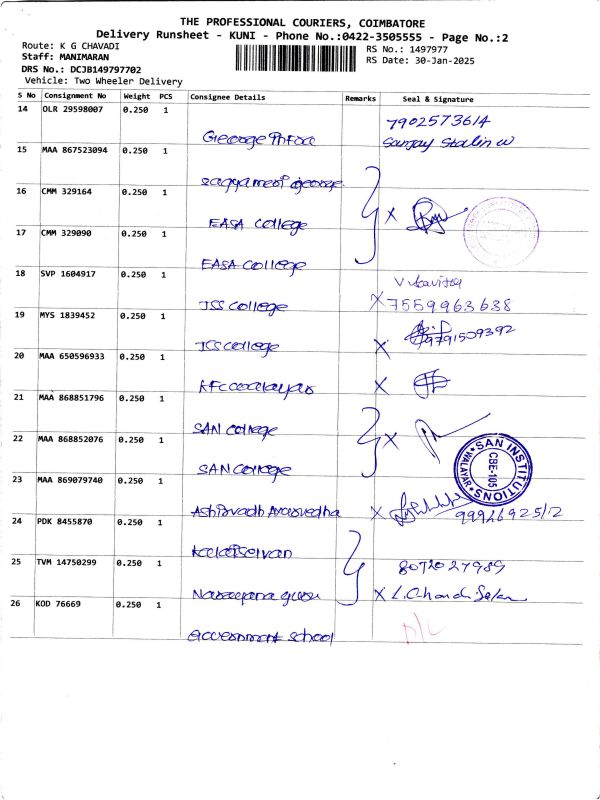 THE PROFESSIONAL COURIERS, COIMBATORE
Delivery Runsheet - KUNI - Phone No.:0422-3505555 - Page No.:2
Route: K G CHAVADI
RS No.: 1497977
Staff: MANIMARAN
RS Date: 30-Jan-2025
DRS No.: DCJB149797702
Vehicle: Two Wheeler Delivery
S No Consignment No Weight PCS Consignee Details Remarks Seal & Signature
14 OLR 29598007 0.250 1
7902573614
Sanjay Stalin W
15 MAA 867523094 0.250 1
16 CMM 329164 0.250 1
EASA College
17 CMM 329090 0.250 1
EASA College
18 SVP 1604917 0.250 1
JSS College
X 7559963638
19 MYS 1839452 0.250 1
JCS College
X 9791509392
20 MAA 650596933 0.250 1
X
21 MAA 868851796 0.250 1
SAN College
X
22 MAA 868852076 0.250 1
SAN College
SAN INSTITUTIONS
CBE-105
WALAYAR
23 MAA 869079740 0.250 1
Ashirvadh Ayurvedha
X
24 PDK 8455870 0.250 1
Kalaiselvan
25 TVM 14750299 0.250 1
8072027989
Narayana guru
X
26 KOD 76669 0.250 1
Government school